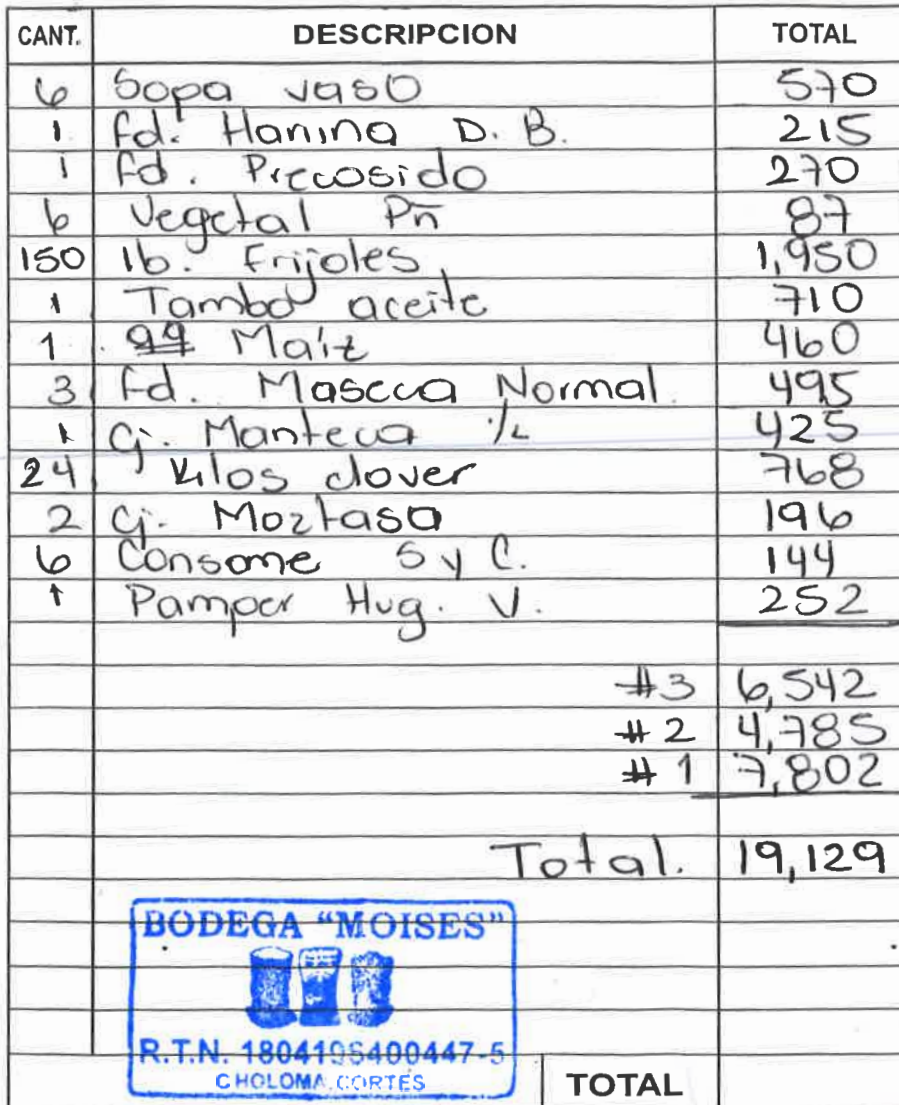 CANT. DESCRIPCION TOTAL
6 Sopa vaso 570
1 fd. Hanina D. B. 215
1 fd. Precosido 270
6 Vegetal Pñ 87
150 lb. Frijoles 1,950
1 Tambo aceite 710
1 qq Maíz 460
3 fd. Maseca Normal 495
1 Cj. Manteca 425
24 Kilos clover 768
2 Cj. Moztasa 196
6 Consome S y C. 144
1 Pamper Hug. V. 252
#3 6,542
#2 4,785
#1 7,802
Total. 19,129
BODEGA "MOISES"
R.T.N. 1804196400447-5
CHOLOMA, CORTES
TOTAL